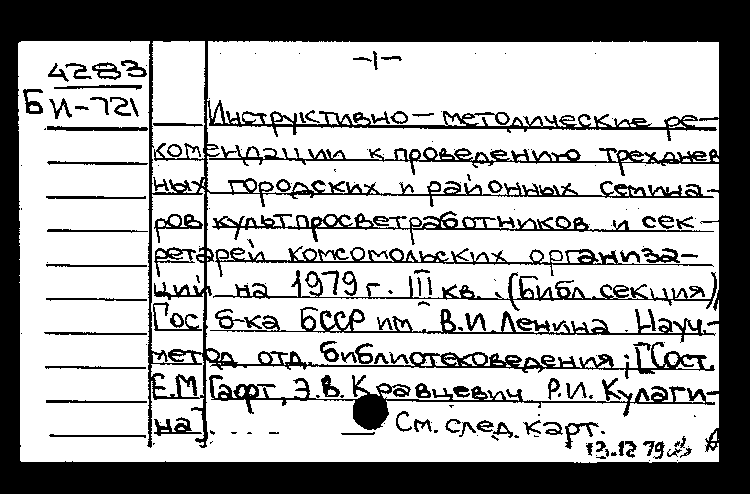 -1-
4283
Б И-721
Инструктивно-методические ре-
комендации к проведению трехднев
ных городских и районных семина-
ров культпросветработников и сек-
ретарей комсомольских организа-
ций на 1979 г. III кв. (Библ. секция)
Гос. б-ка БССР им. В.И. Ленина. Науч.-
метод. отд. библиотековедения; [Сост.
Е.М. Гафт, Э.В. Кравцевич, Р.И. Кулаги-
на].
См. след. карт.
13.12 79